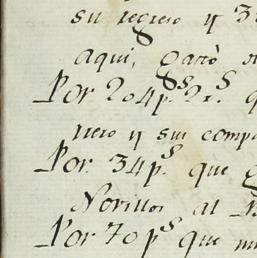 su regreso y 3
aqui, gastò
Por 204 p.s 2 r.s q
nero y sus comp
Por 34 p.s que
Novillos al
Por 70 p.s que